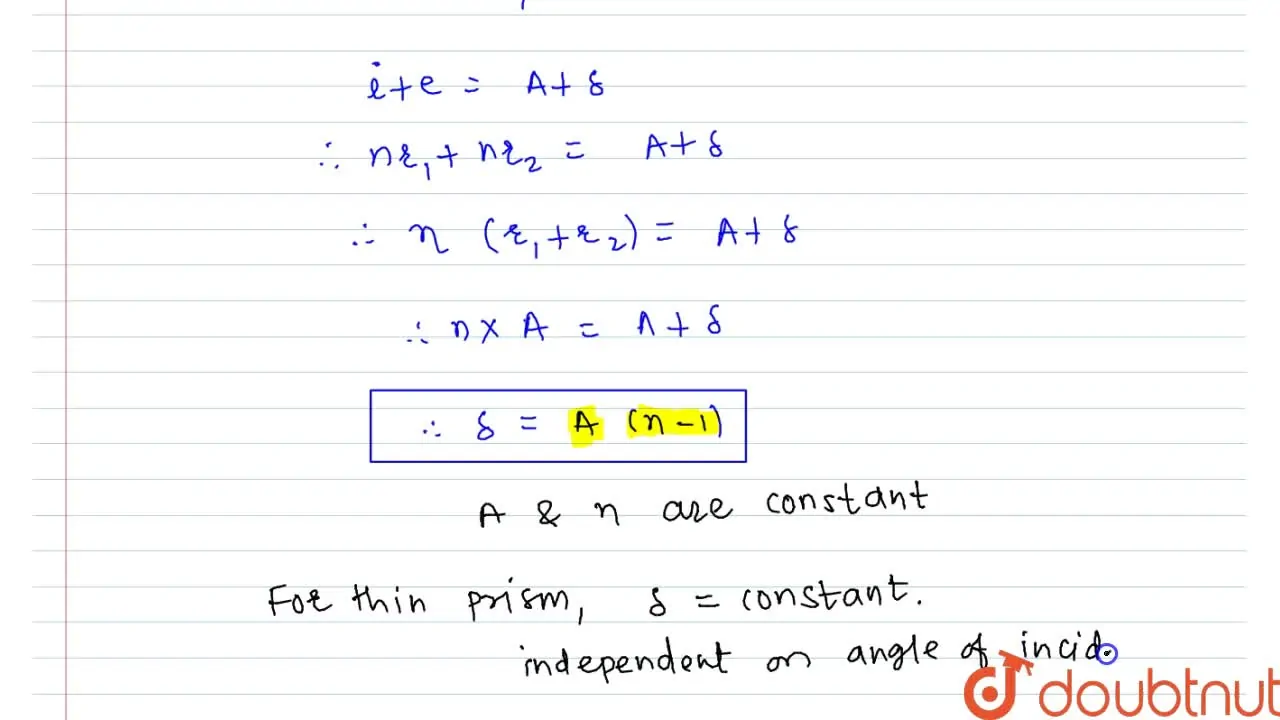 i+e = A+δ
∴ nr₁+ nr₂ = A+δ
∴ n (r₁+r₂) = A+δ
∴ n× A = A+δ
∴ δ = A (n-1)
A & n are constant
For thin prism, δ = constant.
independent on angle of incid
doubtnut